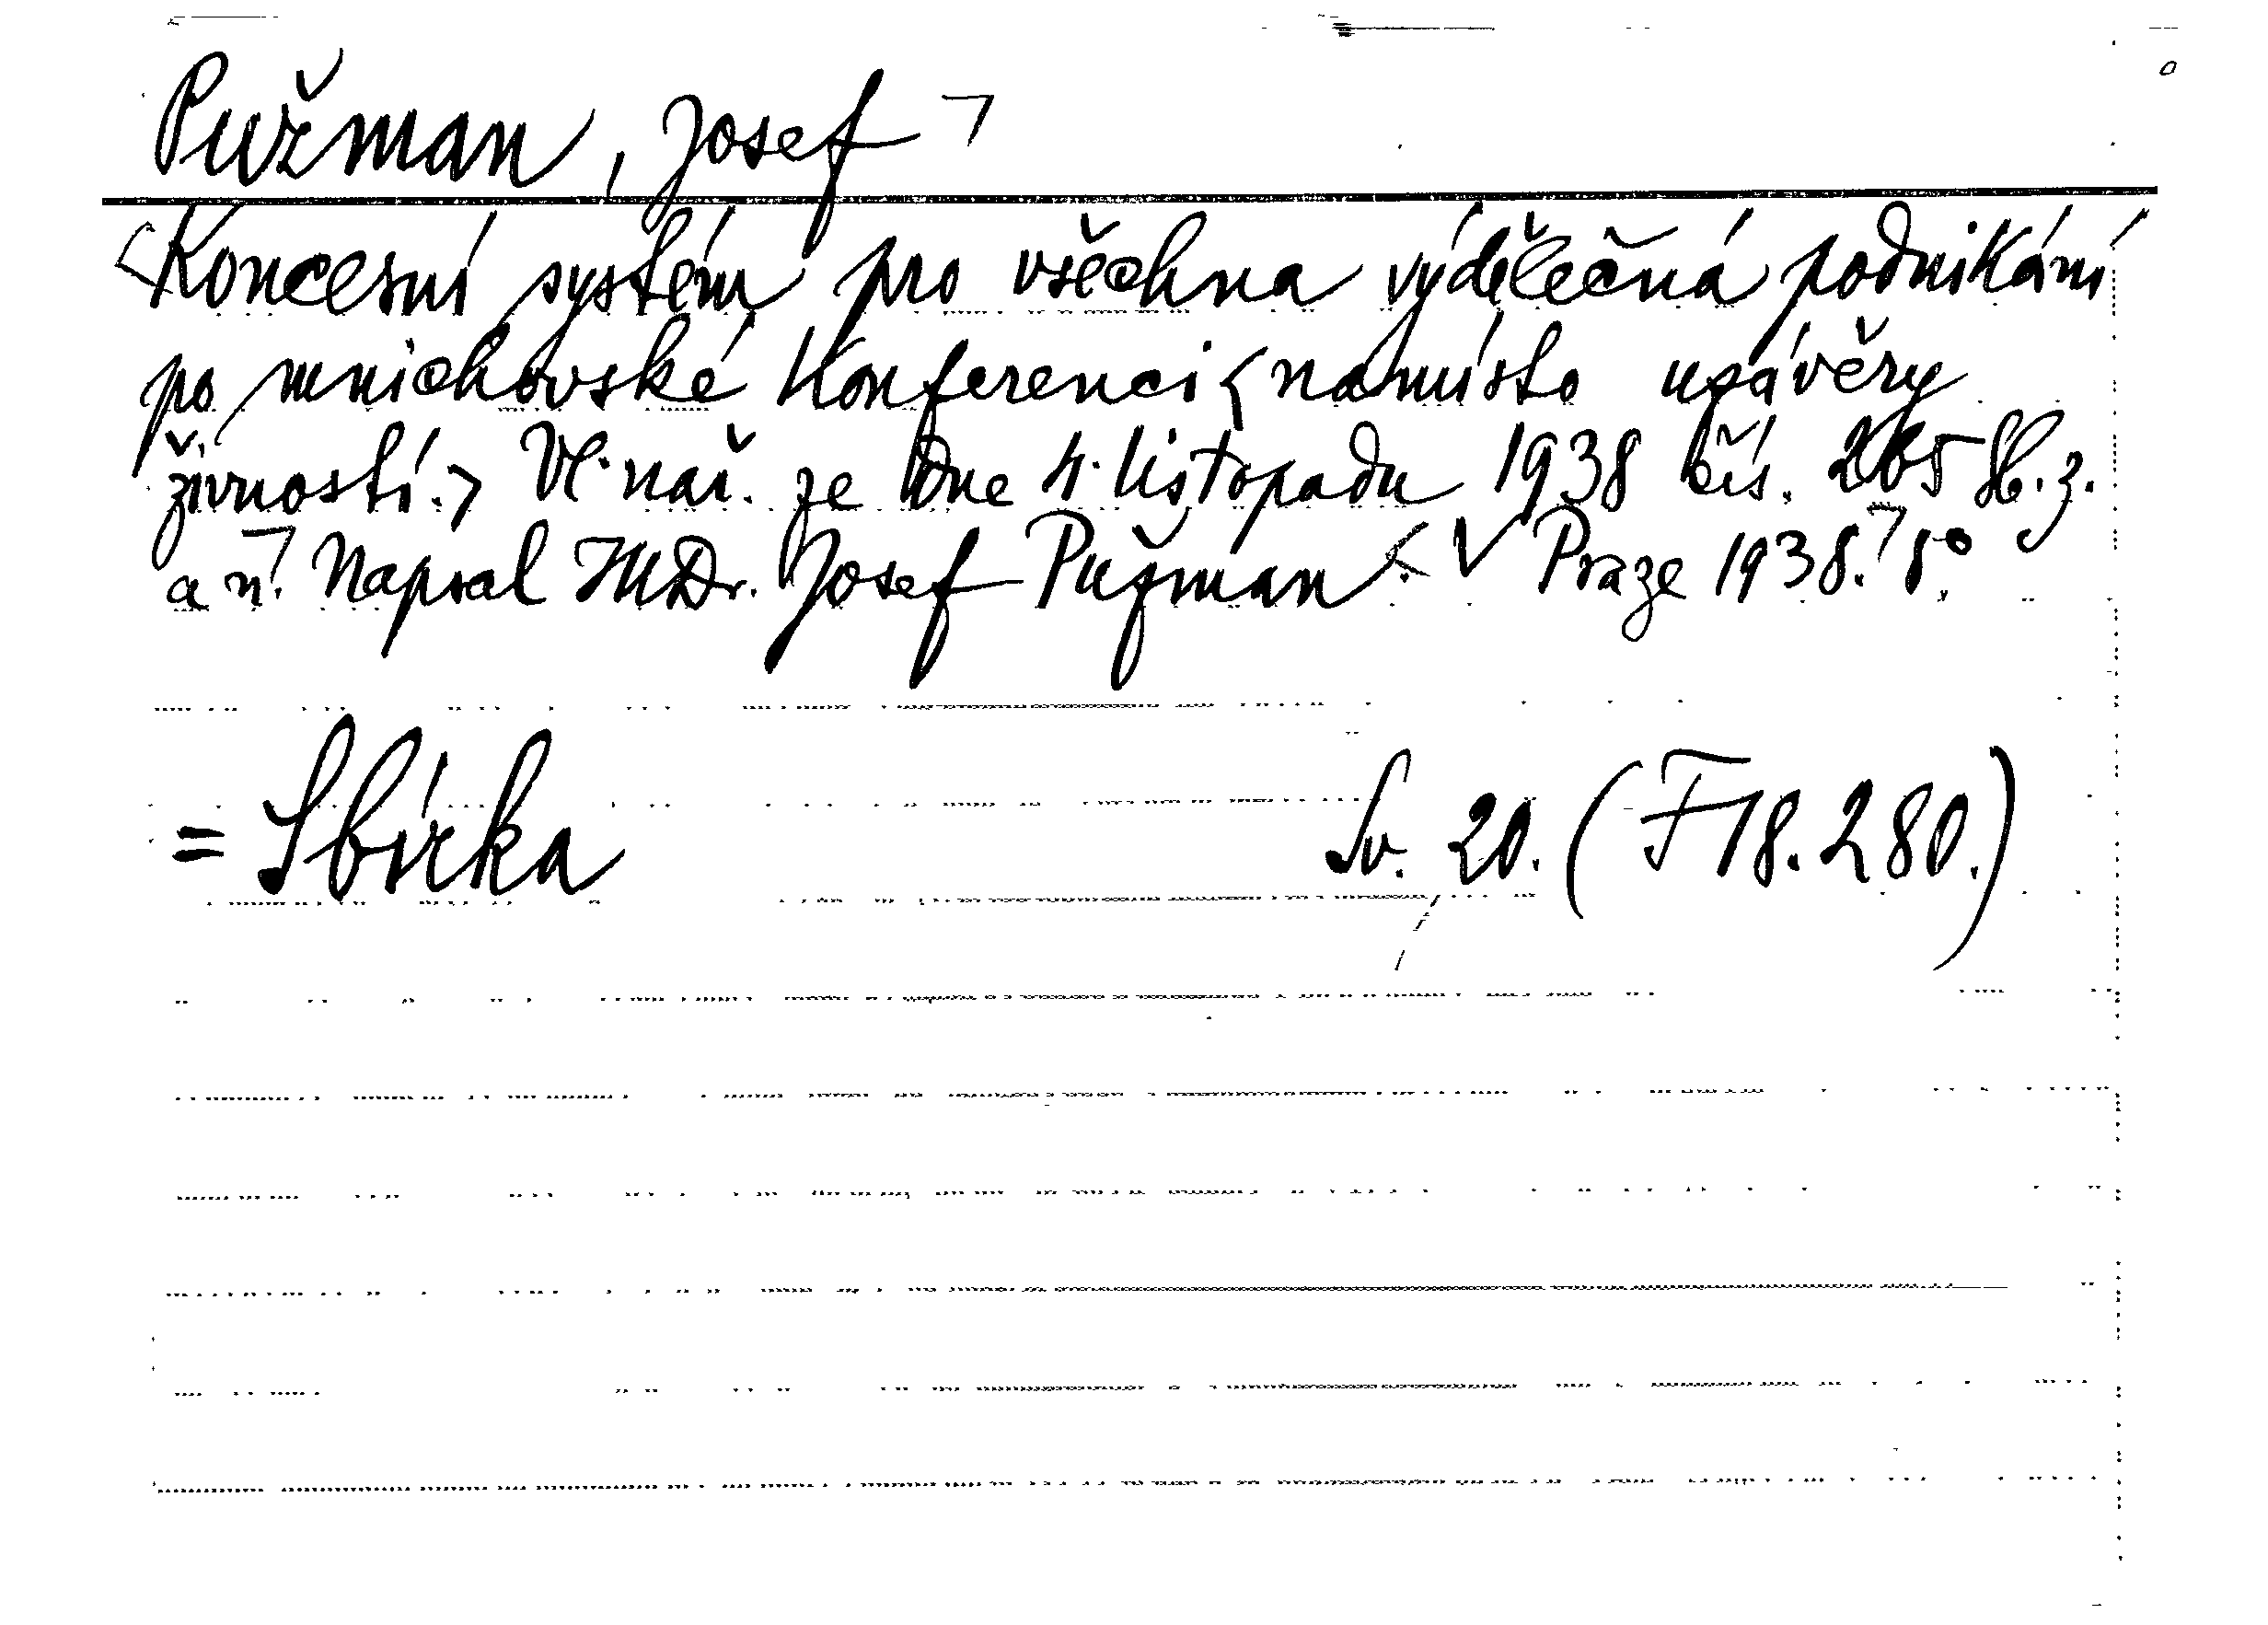 Pužman, Josef
Koncesní systém pro všechna výdělečná podnikání
po mnichovské Konferenci namísto uzávěry
živností. Vl. nař. ze dne 4. listopadu 1938 čís. 265 Sb. z.
a n. Napsal JUDr. Josef Pužman. V Praze 1938. 8°.
= Sbírka Sv. 20. (F 18.280.)